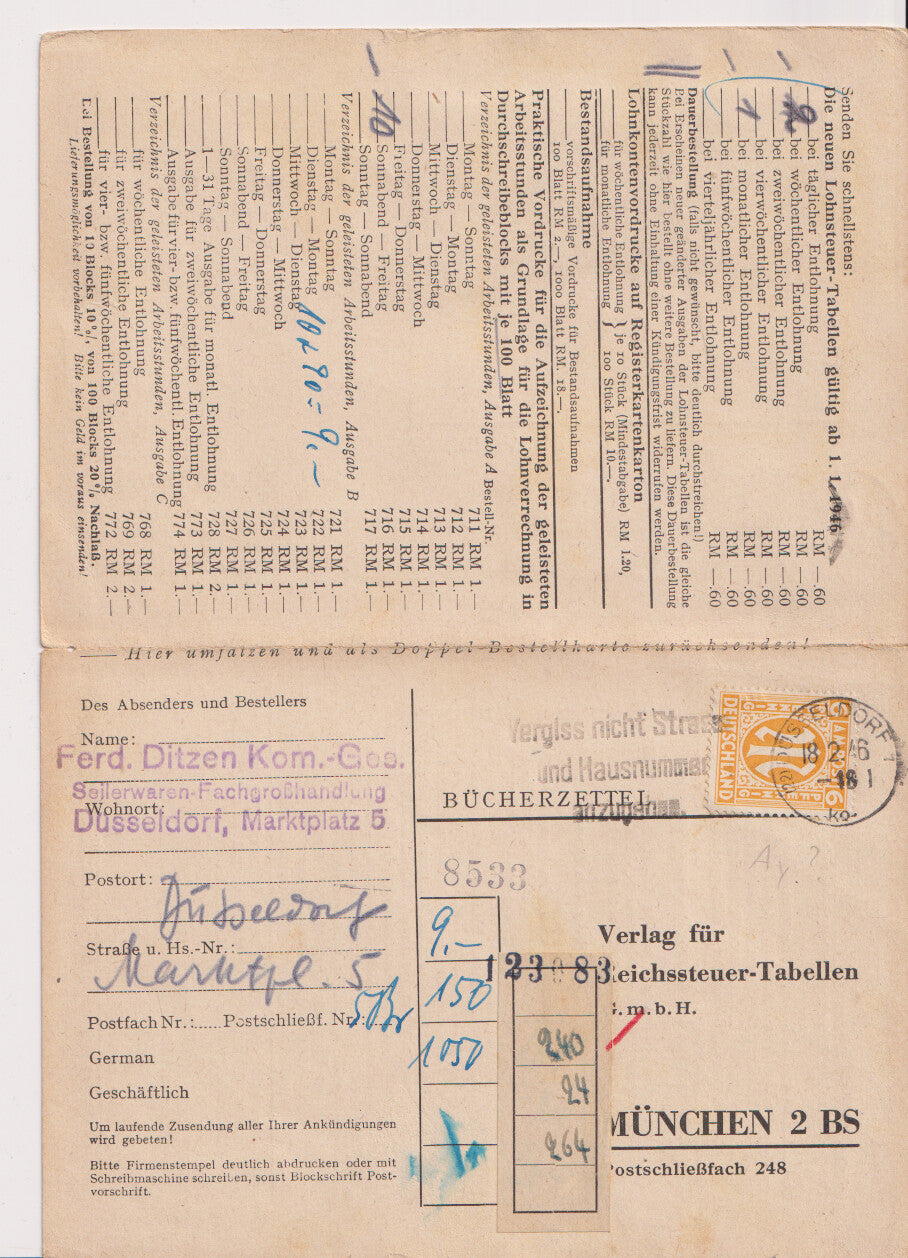 Senden Sie schnellstens:
Die neuen Lohnsteuer-Tabellen gültig ab 1. 1. 1946
bei täglicher Entlohnung RM —.60
2 bei wöchentlicher Entlohnung RM —.60
bei zweiwöchentlicher Entlohnung RM —.60
bei vierwöchentlicher Entlohnung RM —.60
1 bei monatlicher Entlohnung RM —.60
bei fünfwöchentlicher Entlohnung RM —.60
bei vierteljährlicher Entlohnung RM —.60
Dauerbestellung (falls nicht gewünscht, bitte deutlich durchstreichen!)
Bei Erscheinen neuer geänderter Ausgaben der Lohnsteuer-Tabellen ist die gleiche
Stückzahl wie hier bestellt ohne weitere Bestellung zu liefern. Diese Dauerbestellung
kann jederzeit ohne Einhaltung einer Kündigungsfrist widerrufen werden.
Lohnkontenvordrucke auf Registerkartenkarton
für wöchentliche Entlohnung } je 10 Stück (Mindestabgabe) RM 1.20,
für monatliche Entlohnung } 100 Stück RM 10.—,
Bestandsaufnahme
vorschriftsmäßige Vordrucke für Bestandsaufnahmen
100 Blatt RM 2.—, 1000 Blatt RM. 18.—,
Praktische Vordrucke für die Aufzeichnung der geleisteten
Arbeitsstunden als Grundlage für die Lohnverrechnung in
Durchschreibeblocks mit je 100 Blatt
Verzeichnis der geleisteten Arbeitsstunden, Ausgabe A Bestell-Nr.
Montag — Sonntag 711 RM 1.—
Dienstag — Montag 712 RM 1.—
Mittwoch — Dienstag 713 RM 1.—
Donnerstag — Mittwoch 714 RM 1.—
Freitag — Donnerstag 715 RM 1.—
Sonnabend — Freitag 716 RM 1.—
10 Sonntag — Sonnabend 717 RM 1.—
Verzeichnis der geleisteten Arbeitsstunden, Ausgabe B
Montag — Sonntag 721 RM 1.—
Dienstag — Montag 722 RM 1.—
Mittwoch — Dienstag 723 RM 1.—
Donnerstag — Mittwoch 724 RM 1.—
Freitag — Donnerstag 725 RM 1.—
Sonnabend — Freitag 726 RM 1.—
Sonntag — Sonnabend 727 RM 1.—
1—31 Tage Ausgabe für monatl. Entlohnung 728 RM 2.—
Ausgabe für zweiwöchentl. Entlohnung 773 RM 1.—
Ausgabe für vier- bzw. fünfwöchentl. Entlohnung 774 RM 1.—
Verzeichnis der geleisteten Arbeitsstunden, Ausgabe C
für wöchentliche Entlohnung 768 RM 1.—
für zweiwöchentliche Entlohnung 769 RM 2.—
für vier- bzw. fünfwöchentliche Entlohnung 772 RM 2.—
Bei Bestellung von 10 Blocks 10%, von 100 Blocks 20% Nachlaß.
Lieferungsmöglichkeit vorbehalten! Bitte kein Geld im voraus einsenden!
9.—
Hier umfalzen und als Doppel-Bestellkarte zurücksenden!
Des Absenders und Bestellers
Name:
Ferd. Ditzen Kom.-Ges.
Seilerwaren-Fachgroßhandlung
Wohnort:
Düsseldorf, Marktplatz 5
Postort:
Düsseldorf
Straße u. Hs.-Nr.:
Marktpl. 5
Postfach Nr.: Postschließf. Nr.:
German
Geschäftlich
Um laufende Zusendung aller Ihrer Ankündigungen
wird gebeten!
Bitte Firmenstempel deutlich abdrucken oder mit
Schreibmaschine schreiben, sonst Blockschrift Post-
vorschrift.
Vergiss nicht Strasse
und Hausnummer
anzugeben.
DEUTSCHLAND
18.2.46
BÜCHERZETTEL
8533
9.—
150
1050
240
24
264
Verlag für
Reichssteuer-Tabellen
G.m.b.H.
MÜNCHEN 2 BS
Postschließfach 248